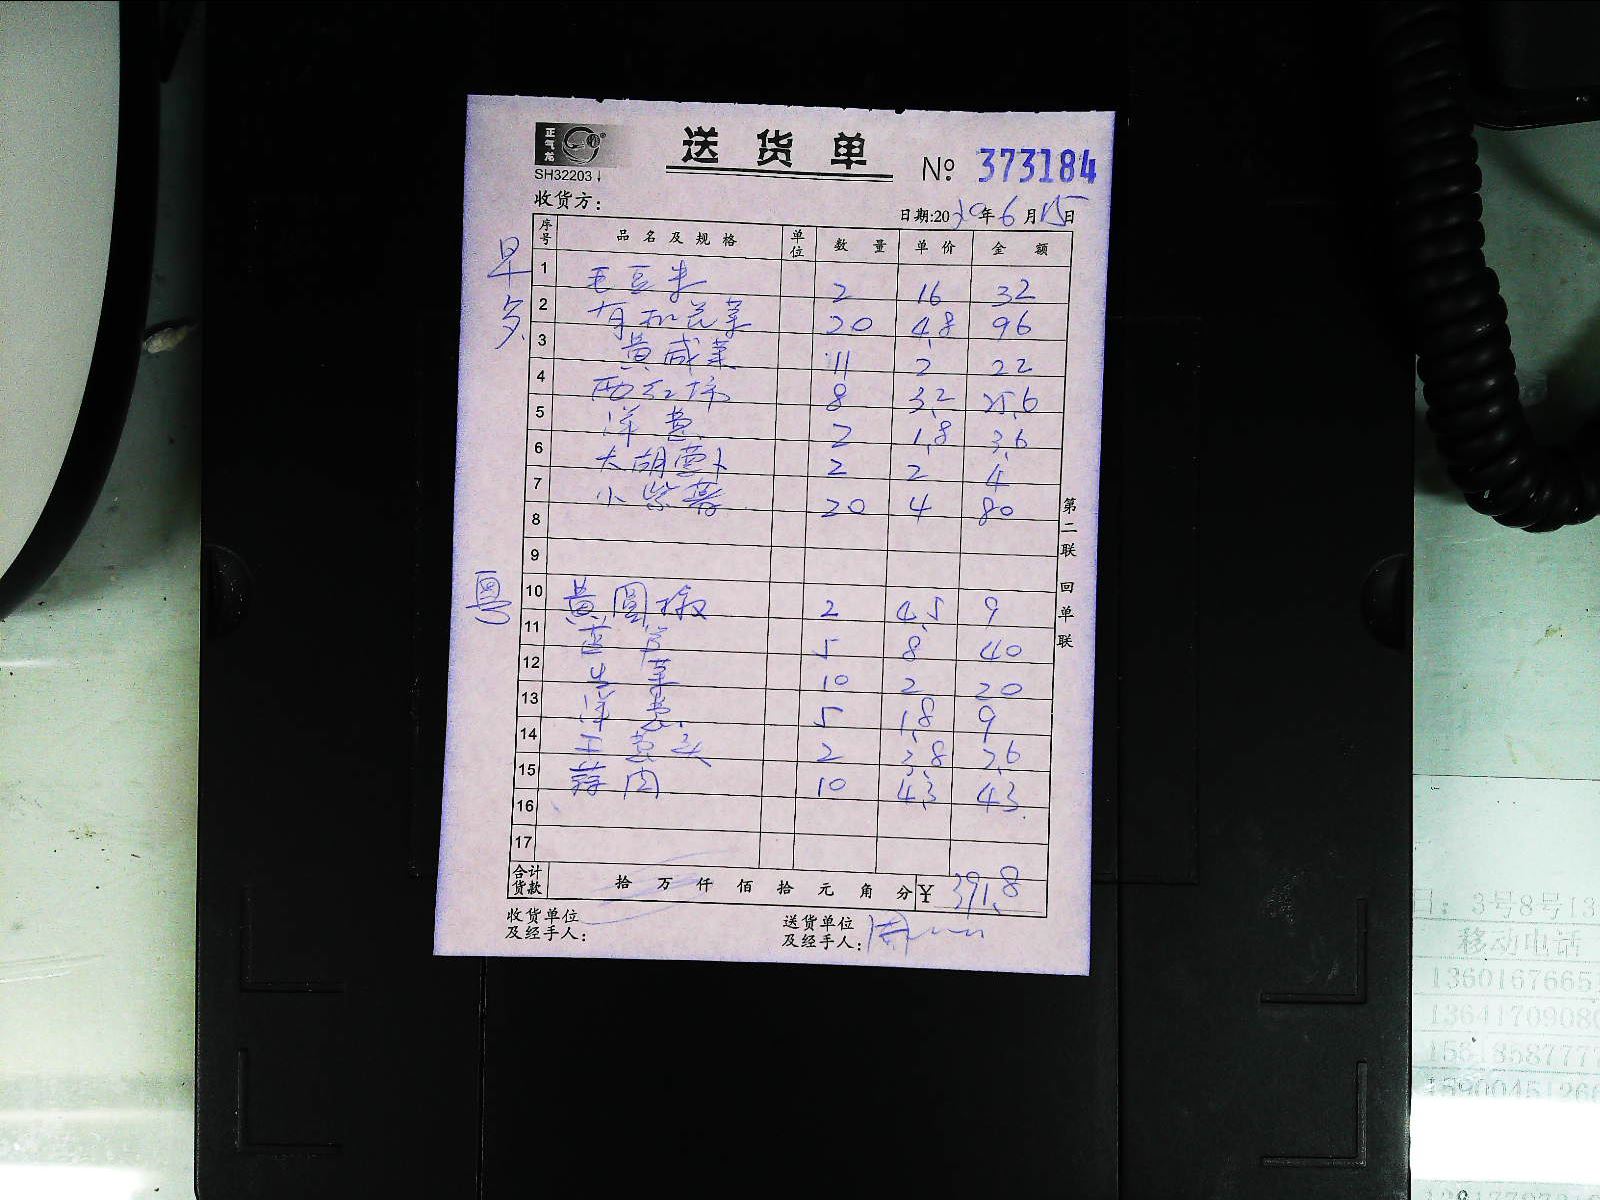 正气龙
送货单
№ 373184
SH32203
收货方：
日期:2020年6月15日
序号 品名及规格 单位 数量 单价 金额
早
1 毛豆米 2 16 32
2 有机花菜 20 4.8 96
3 黄咸菜 11 2 22
4 西红柿 8 3.2 25.6
5 洋葱 2 1.8 3.6
6 大胡萝卜 2 2 4
7 小紫薯 20 4 80
8
9
粤
10 黄圆椒 2 4.5 9
11 芦 5 8 40
12 生菜 10 2 20
13 洋葱 5 1.8 9
14 葱头 2 3.8 7.6
15 蒜肉 10 4.3 43
16
17
合计货款 拾万仟佰拾元角分 ¥ 391.8
收货单位及经手人：
送货单位及经手人：
第二联 回单联
日: 3号8号13
移动电话
1360167665
1364170908